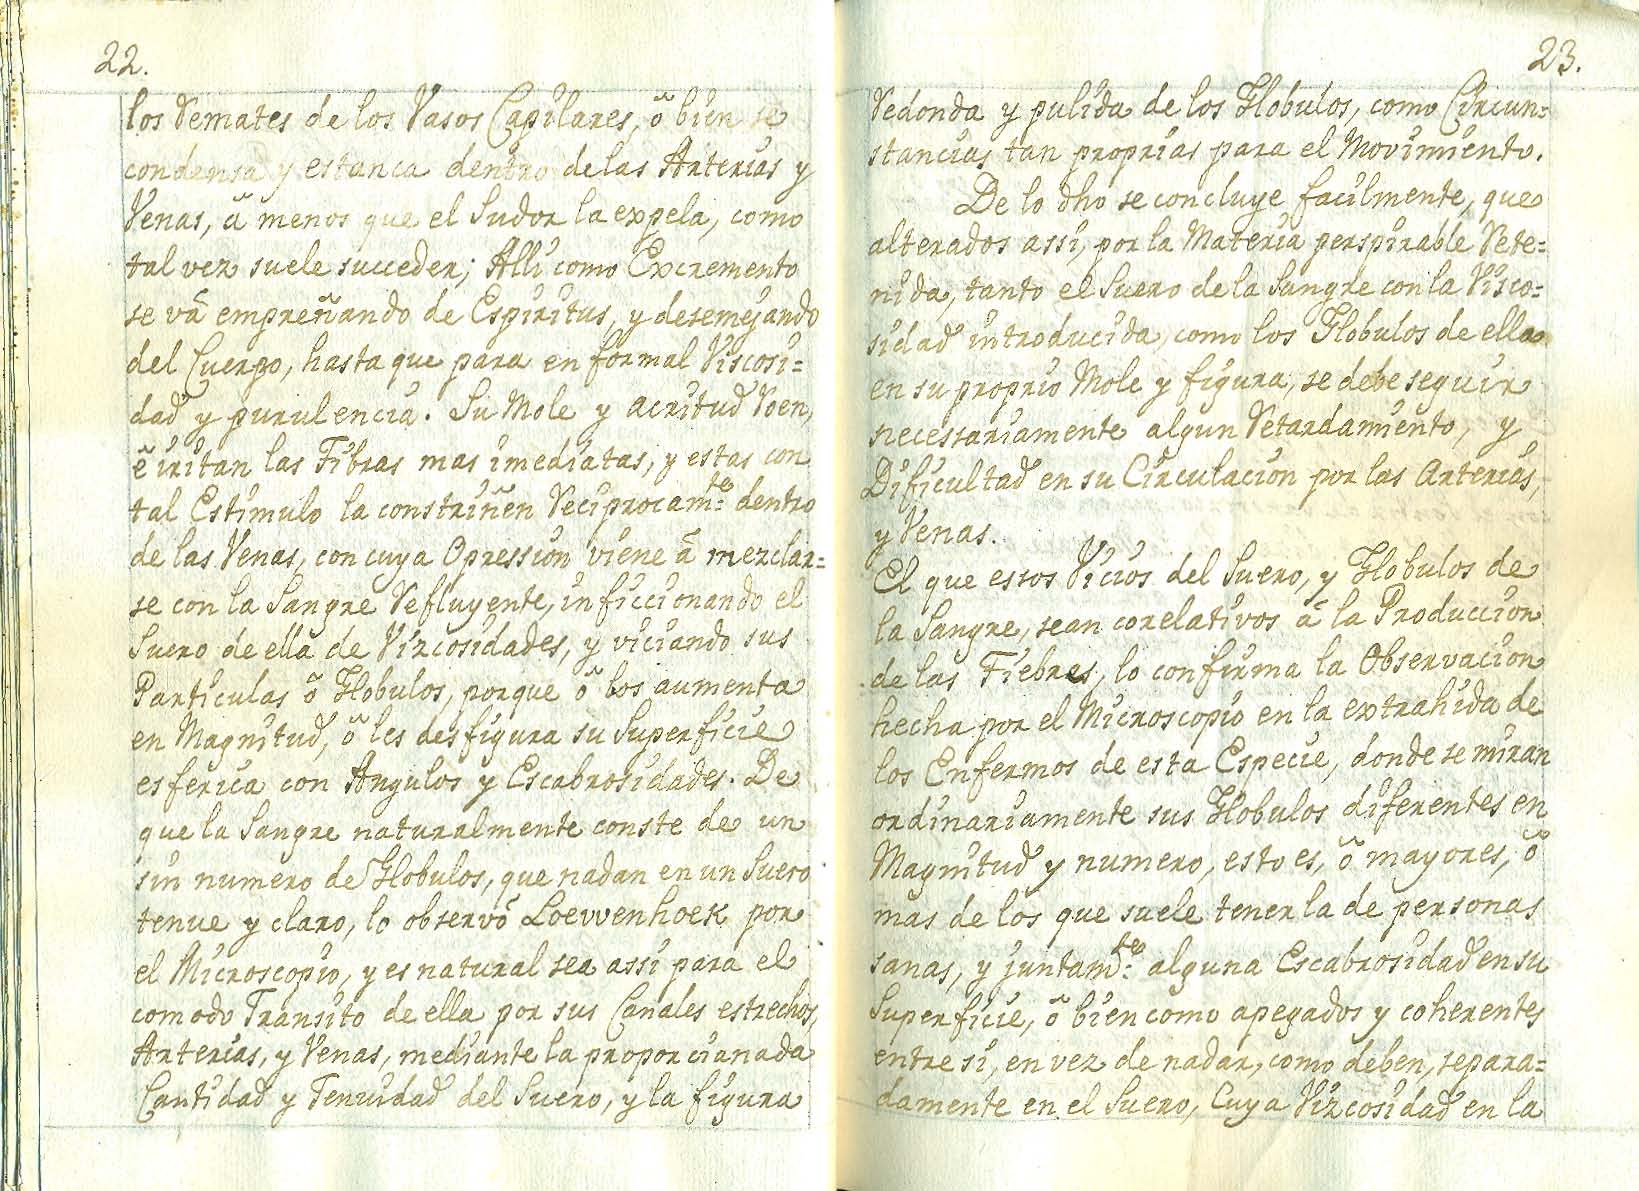 22.
los Remates de los Vasos Capilares, õ bien se
condensa y estanca dentro de las Arterias y
Venas, ã menos que el Sudor la expela, como
tal vez suele succeder; Alli como Excremento
se vã empreñando de Espiritus, y desemejando
del Cuerpo, hasta que para en formal Viscosi=
dad y purulencia. Su Mole y acritud Roen,
ẽ iritan las Fibras mas imediatas, y estas con
tal Estimulo la constriñen Reciprocam.te dentro
de las Venas, con cuya Opression viene ã mezclar=
se con la Sangre Refluyente, inficcionando el
Suero de ella de Vizcosidades, y viciando sus
Particulas õ Globulos, porque õ los aumenta
en Magnitud, õ les desfigura su Superficie
esferica con Angulos y Escabrosidades. De
que la Sangre naturalmente conste de un
sin numero de Globulos, que nadan en un Suero
tenue y claro, lo observõ Loevvenhoek por
el Microscopio, y es natural sea assi para el
comodo Transito de ella por sus Canales estrechos,
Arterias, y Venas, mediante la proporcianada
Cantidad y Tenuidad del Suero, y la figura
23.
Redonda y pulida de los Globulos, como Circun=
stancias tan proprias para el Movimiento.
De lo dho se concluye facilmente, que
alterados assi, por la Materia perspirable Rete=
nida, tanto el Suero de la Sangre con la Visco=
sidad introducida, como los Globulos de ella
en su proprio Mole y figura, se debe seguir
necessariamente algun Retardamiento, y
Dificultad en su Circulacion por las Arterias,
y Venas.
El que essos Vicios del Suero, y Globulos de
la Sangre, sean corelativos ã la Produccion
de las Fiebres, lo confirma la Observacion
hecha por el Microscopio en la extrahida de
los Enfermos de esta Especie, donde se miran
ordinariamente sus Globulos diferentes en
Magnitud y numero, esto es, õ mayores, õ
mas de los que suele tener la de personas
sanas, y juntam.te alguna Escabrosidad en su
Superficie, õ bien como apegados y coherentes
entre si, en vez de nadar, como deben, separa=
damente en el Suero, Cuya Vizcosidad en la